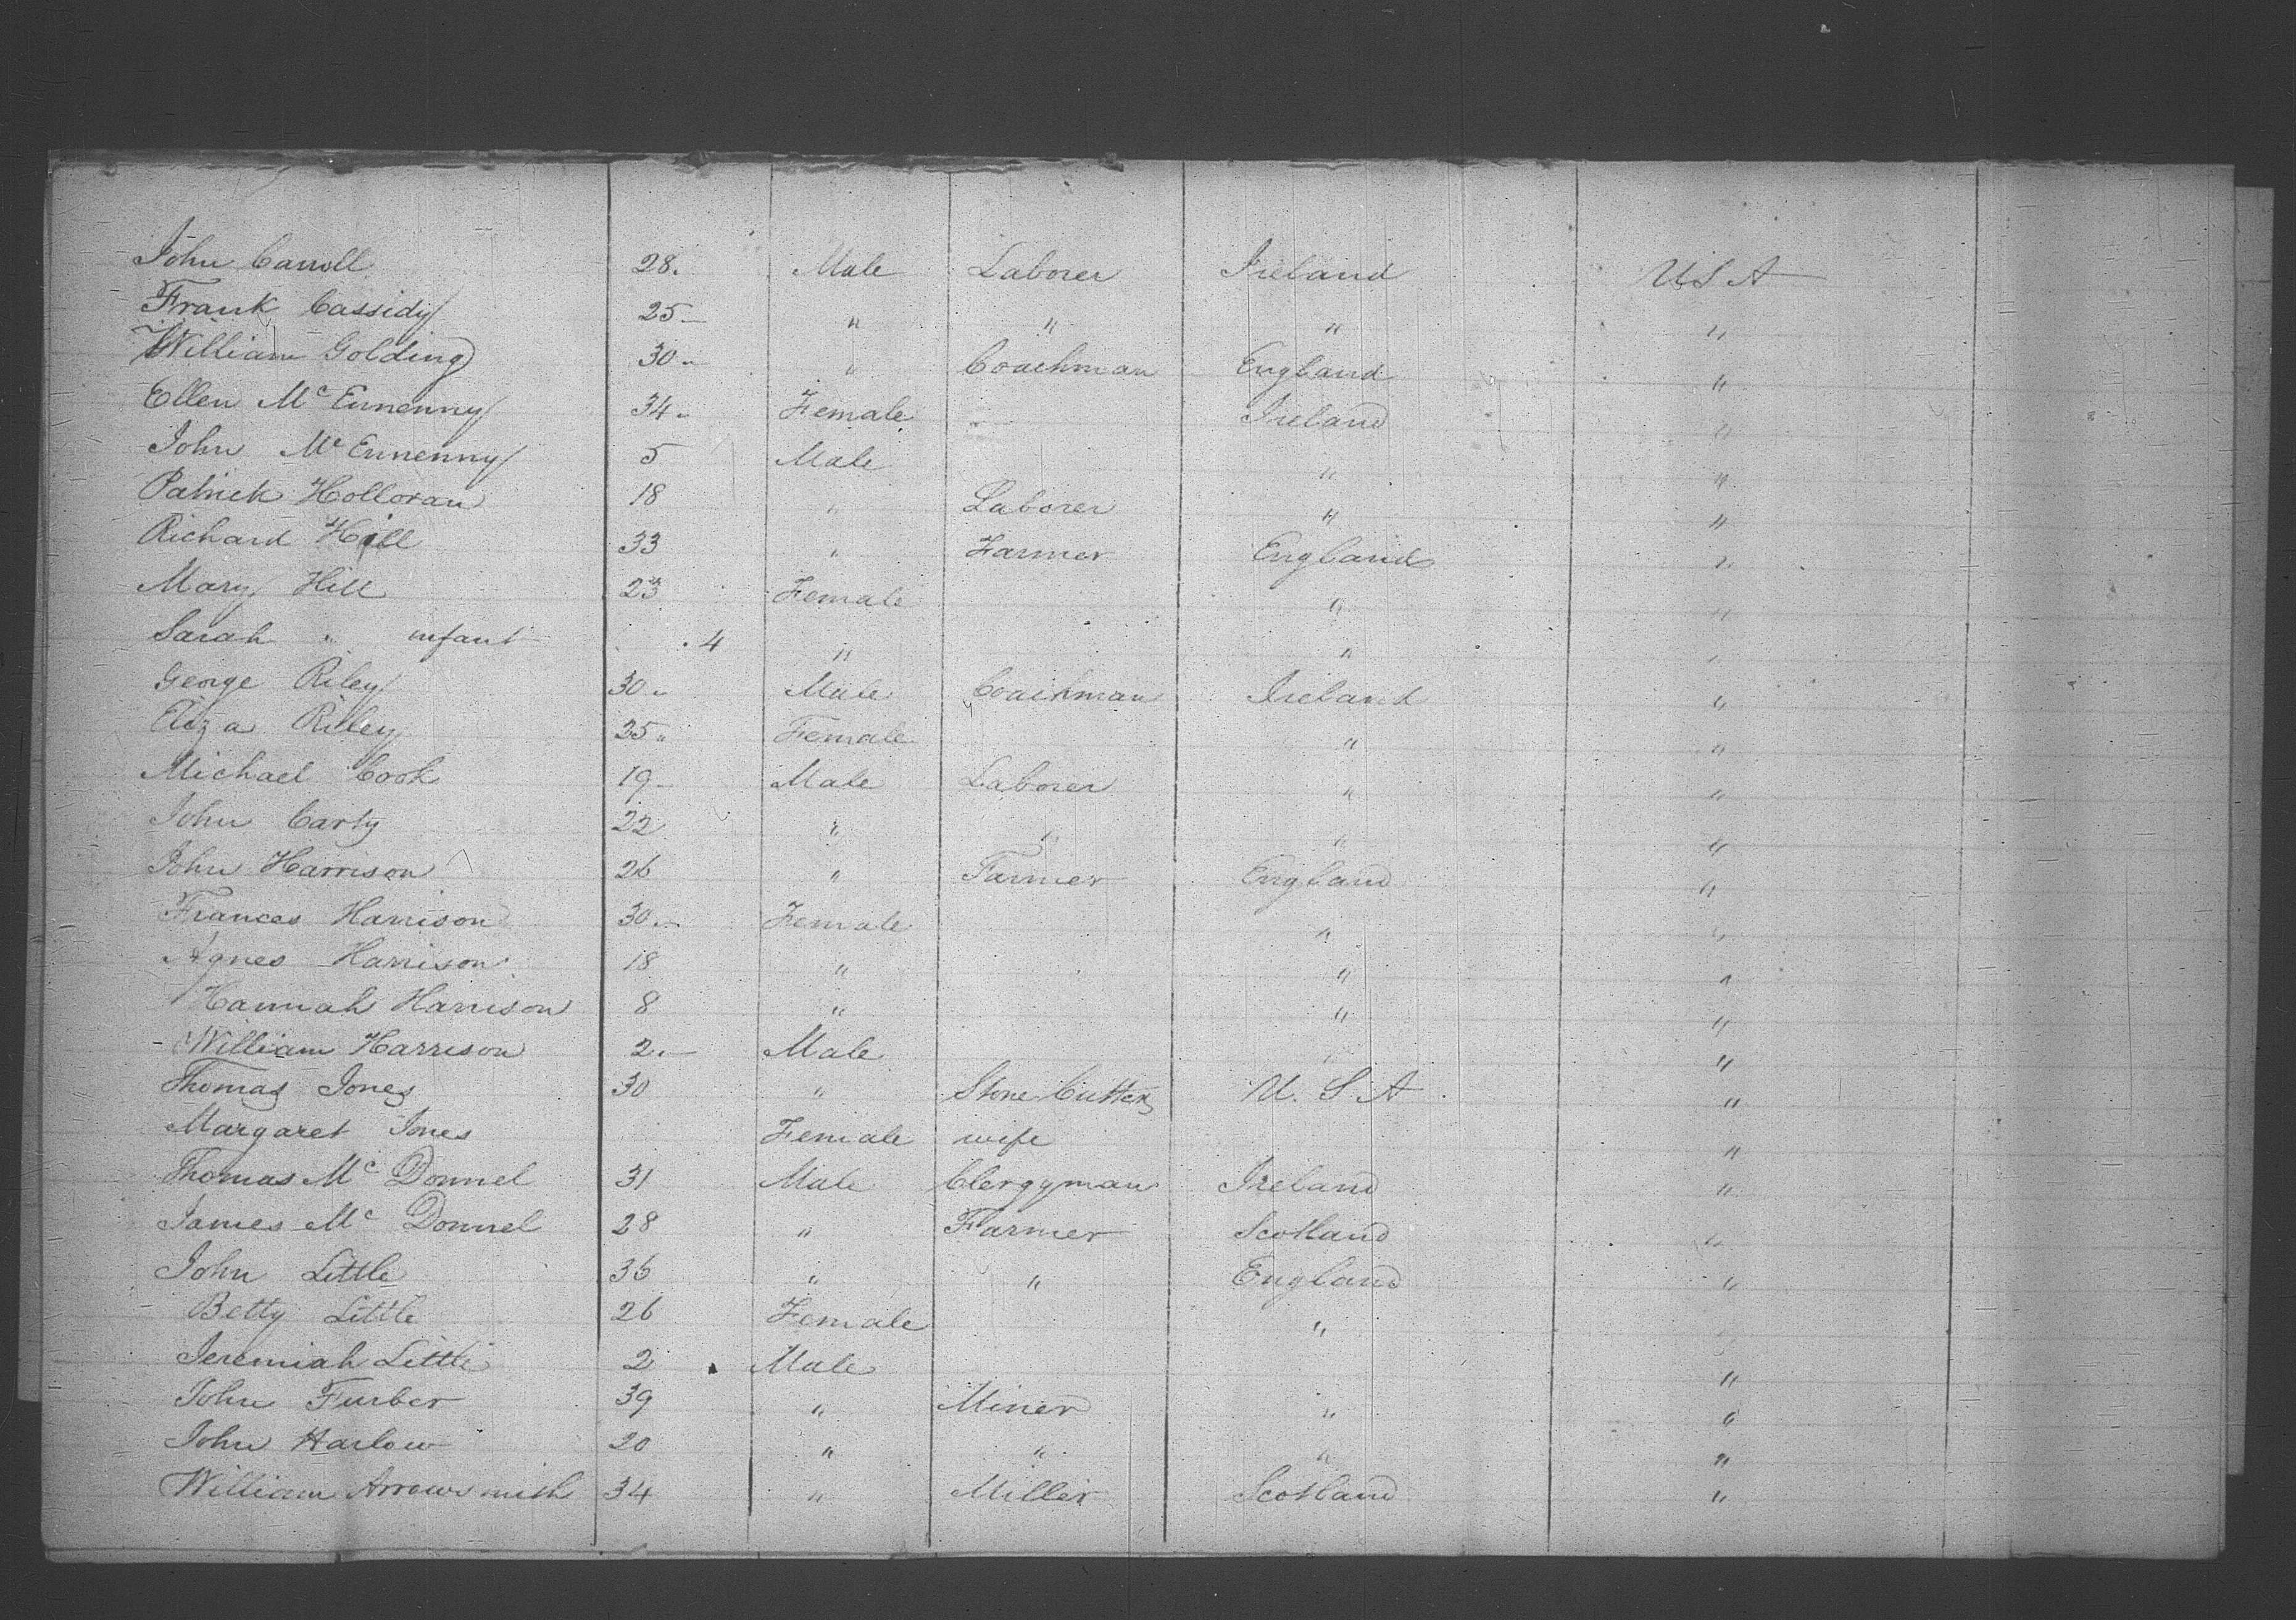 John Carroll 28. Male Laborer Ireland U S A
Frank Cassidy 25 " " " "
William Golding 30 " " Coachman England "
Ellen Mc Ennenny 34 " Female Ireland "
John Mc Ennenny 5 Male " "
Patrick Holloran 18 " Laborer " "
Richard Hill 33 " Farmer England "
Mary Hill 23 Female " "
Sarah " infant .4 " " "
George Riley 30 " Male Coachman Ireland "
Eliza Riley 25 " Female " "
Michael Cook 19 Male Laborer " "
John Carty 22 " " " "
John Harrison 26 " Farmer England "
Frances Harrison 30 Female " "
Agnes Harrison 18 " " "
Hannah Harrison 8 " " "
William Harrison 2 Male " "
Thomas Jones 30 " Stone Cutter U. S A "
Margaret Jones Female wife "
Thomas Mc Donnel 31 Male Clergyman Ireland "
James Mc Donnel 28 " Farmer Scotland "
John Little 36 " " England "
Betty Little 26 Female " "
Jeremiah Little 2 Male "
John Furber 39 " Miner " "
John Harlow 20 " " " "
William Arrowsmith 34 " Miller Scotland "